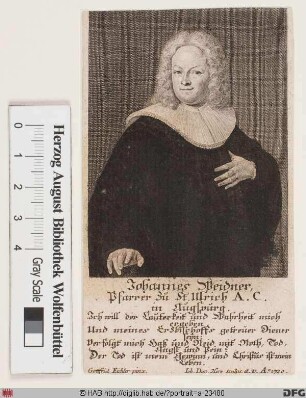 Johannes Weidner,
Pfarrer zu St. Ulrich A. C.
in Augspurg.
Ich will der Lauterkeit und Wahrheit mich
ergeben
Und meines Ertzhirten getreuer Diener
seyn
Verfolgt mich Haß und Neid mit Noth, Tod,
Angst und Pein:
Der Tod ist mein Gewinn, und Christus ist mein
Leben.
Gottfrid Eichler pinx.
0
1
2
3
4
Gray Scale
Herzog August Bibliothek Wolfenbüttel
© HAB http://diglib.hab.de/?portrait=a-23480